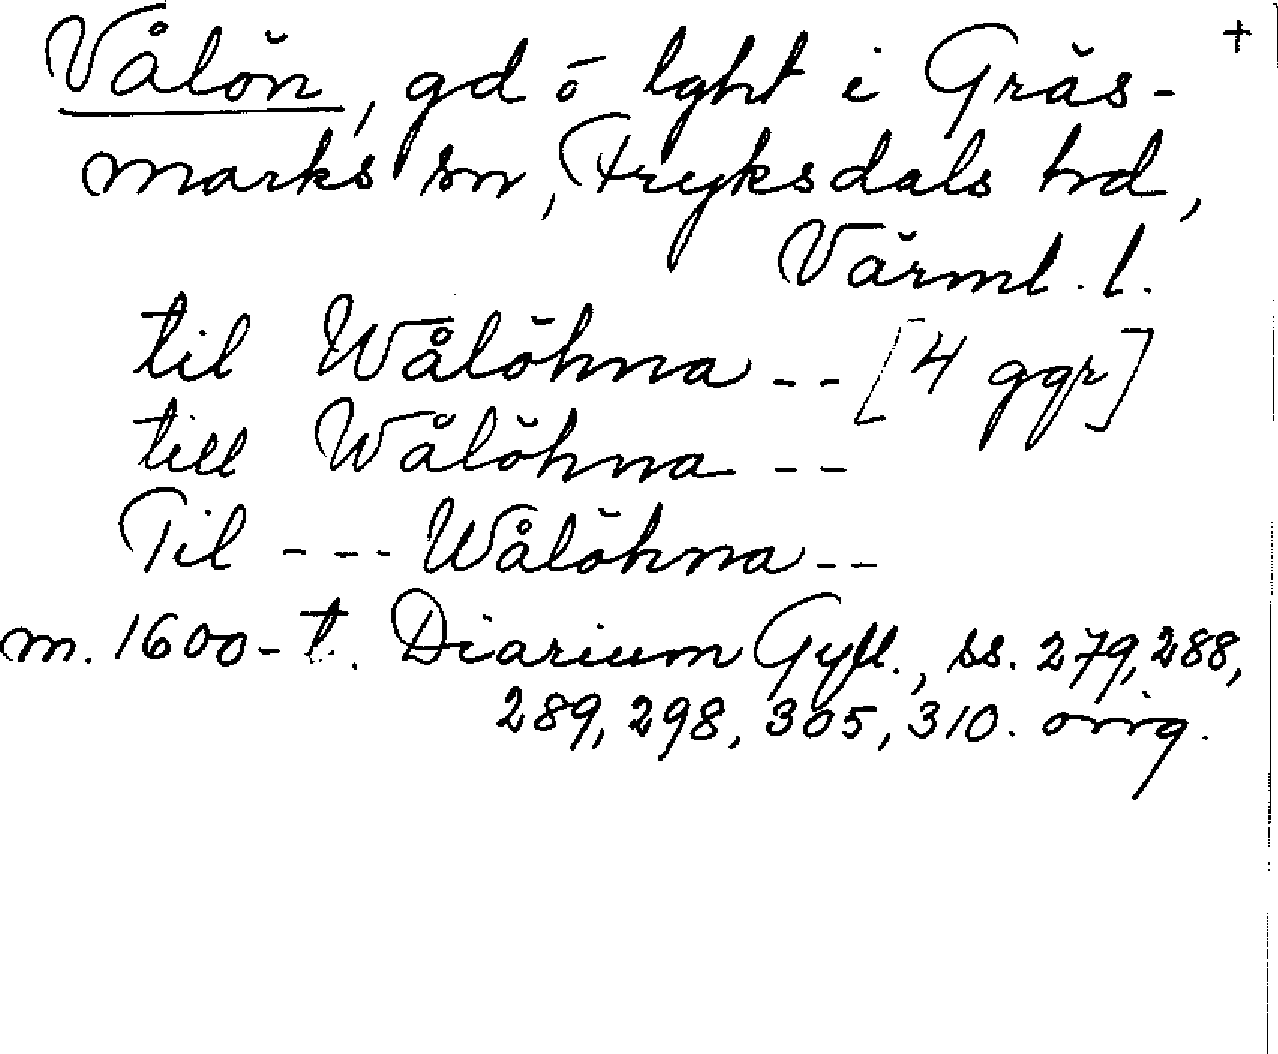 Vålön, gd o lght i Gräs- +
marks sn, Fryksdals hd,
Värml. l.
til Wålöhna -- [4 ggr]
till Wålöhna --
Til --- Wålöhna --
m. 1600-t. Diarium Gyll., ss. 279, 288,
289, 298, 305, 310. orig.